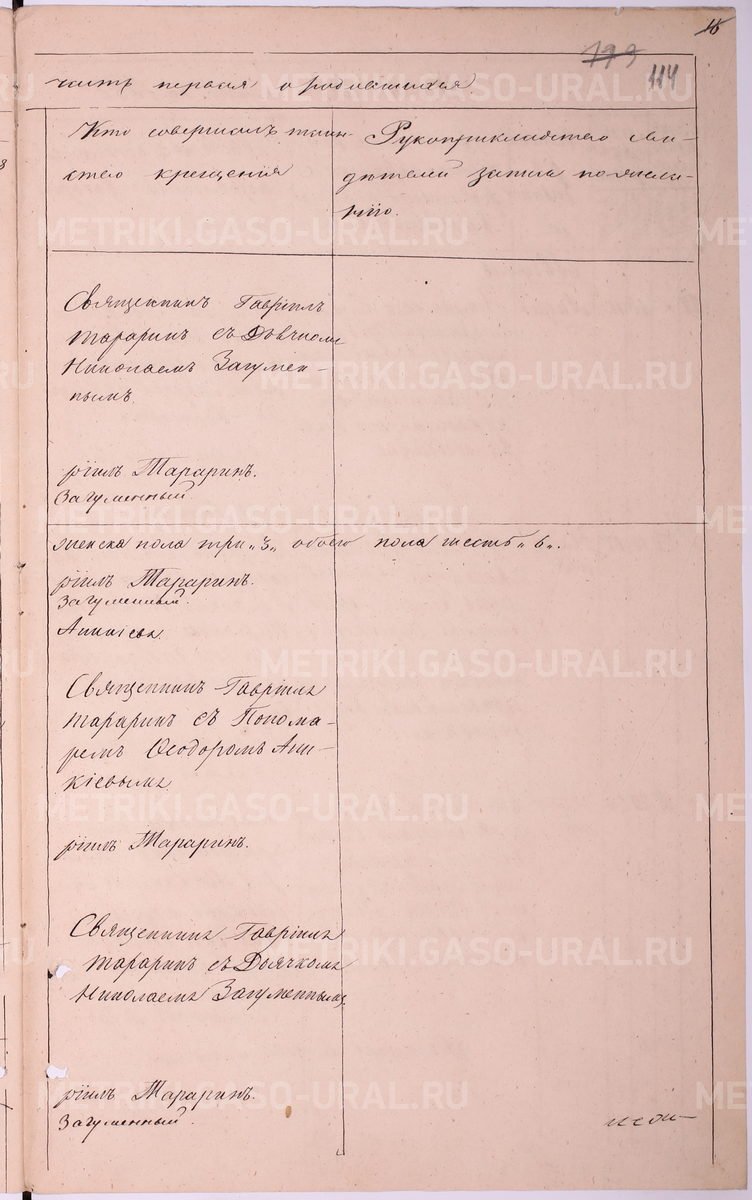 16
199
114
часть первая о родившихся
Кто совершалъ таин-
ство крещенія
Рукоприкладство сви-
дѣтелей записи по жела-
нію.
Священникъ Гавріилъ
Тараринъ съ Дьячкомъ
Николаемъ Загумен-
нымъ
ріилъ Тараринъ.
Загуменный
женска пола три „3„ обоего пола шесть „6„.
ріилъ Тараринъ.
Загуменный.
Аникіевъ.
Священникъ Гавріилъ
Тараринъ съ Понома-
ремъ Ѳеодоромъ Ани-
кіевымъ
ріилъ Тараринъ.
Священникъ Гавріилъ
Тараринъ съ Дьячкомъ
Николаемъ Загуменнымъ.
ріилъ Тараринъ.
Загуменный.
METRIKI.GASO-URAL.RU